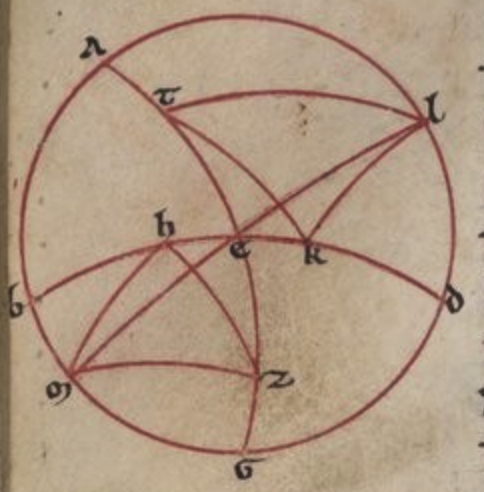 a
t
l
h
e
k
b
d
m
z
g